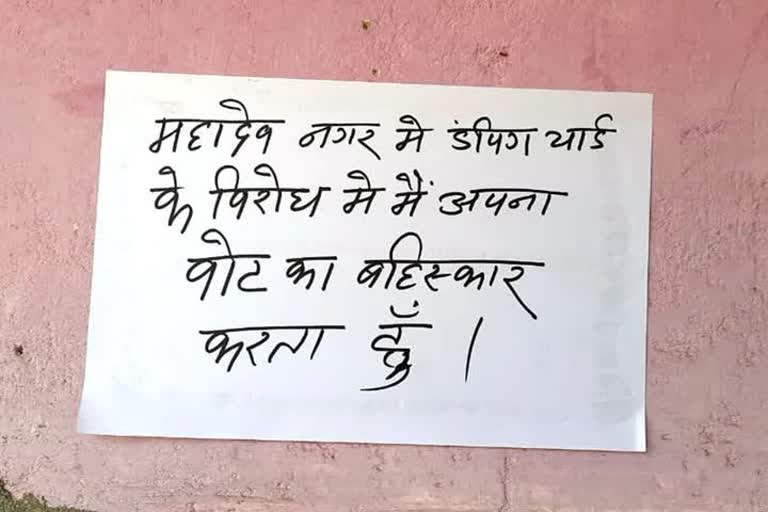 महादेव नगर मे डंपिग यार्ड
के विरोध मे मैं अपना
वोट का बहिस्कार
करता हूँ ।